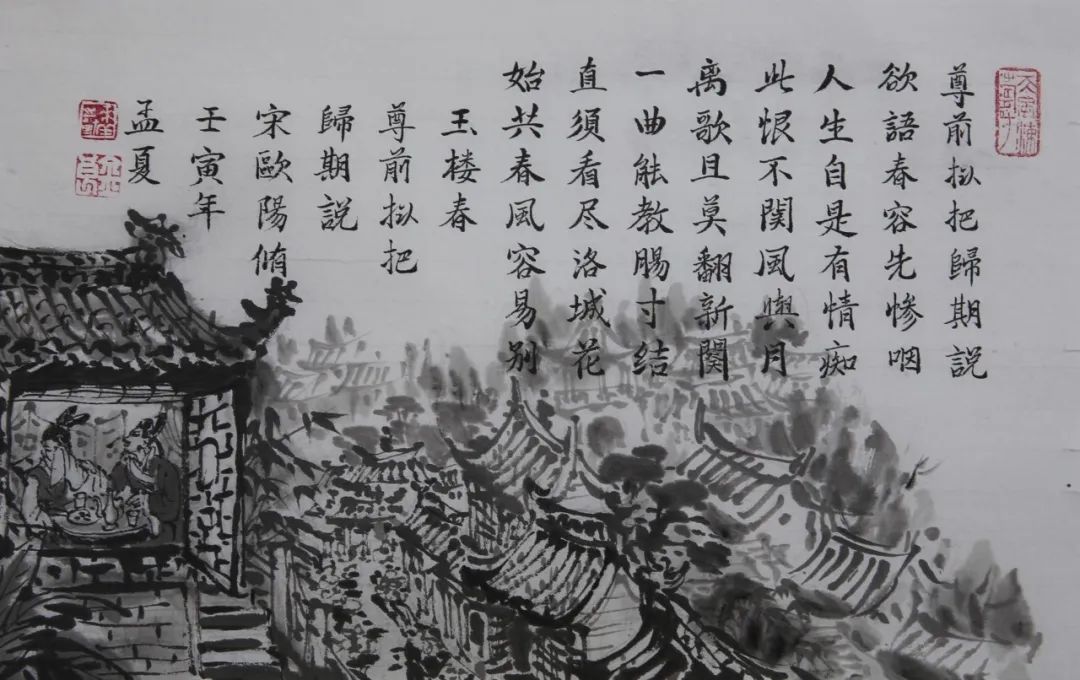 尊前拟把歸期説
欲語春容先惨咽
人生自是有情痴
此恨不関風與月
离歌且莫翻新関
一曲能教腸寸结
直須看尽洛城花
始共春風容易别
玉楼春
尊前拟把
歸期説
宋歐陽脩
壬寅年
孟夏